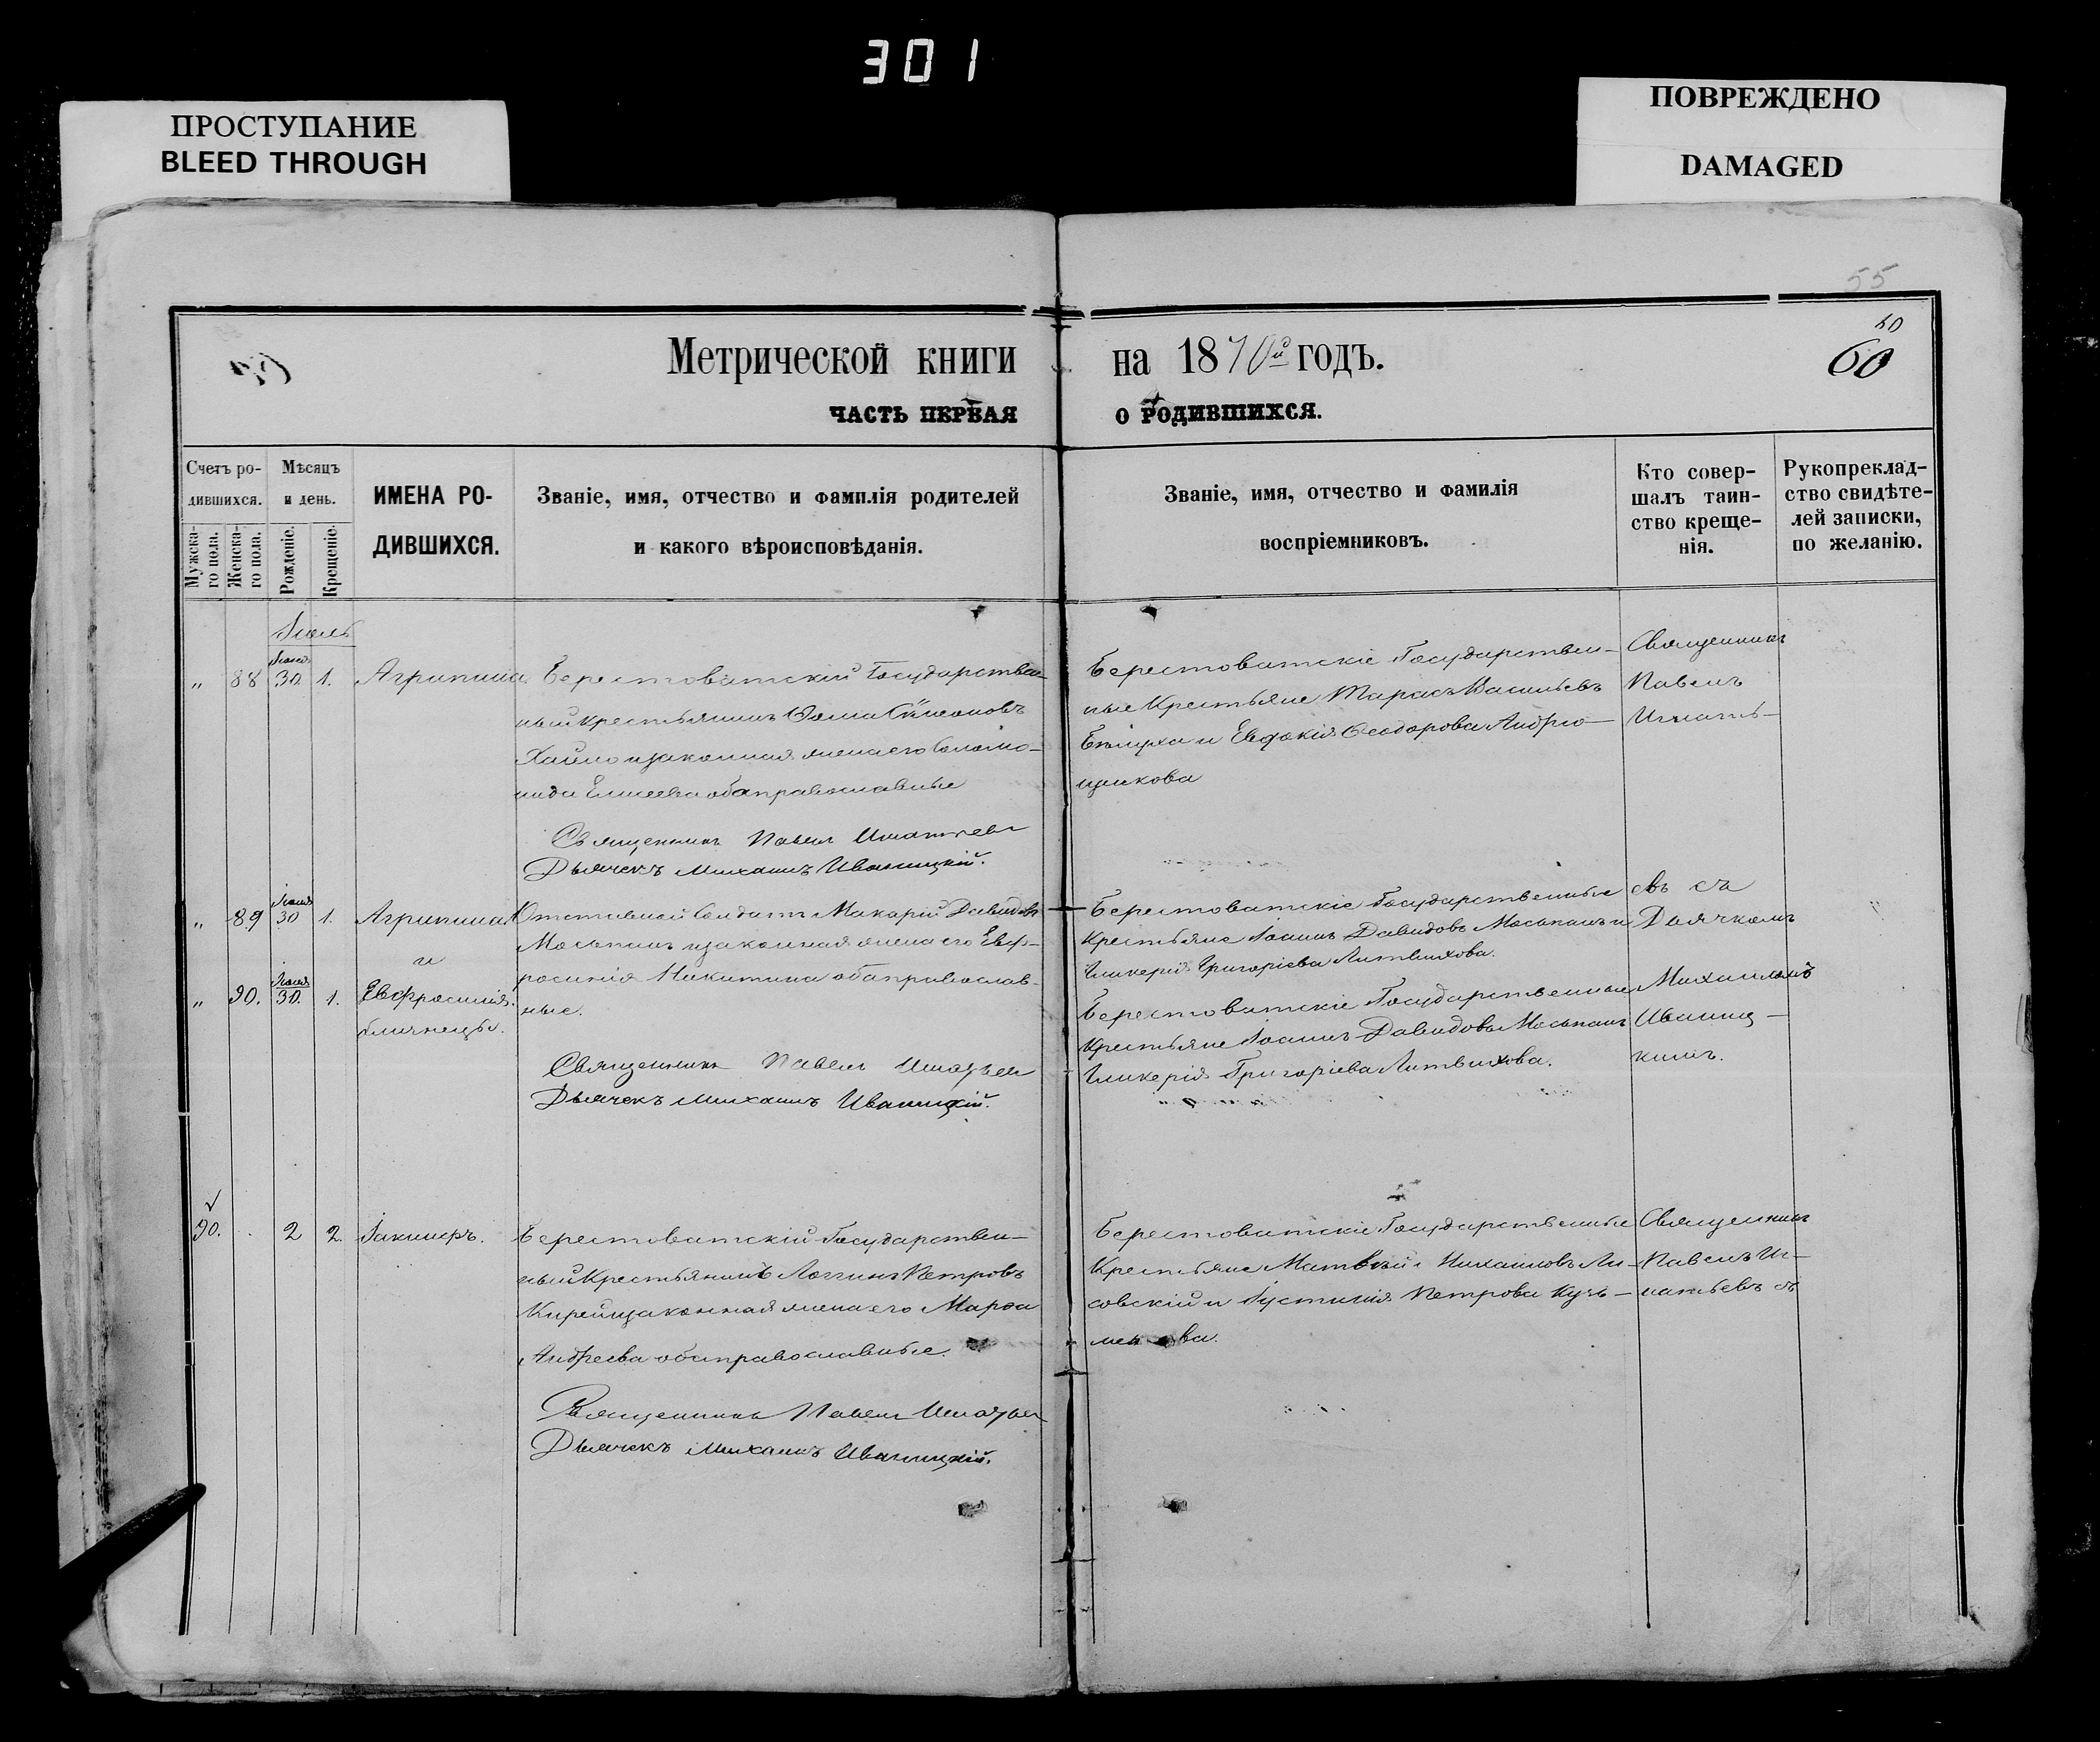 301
ПРОСТУПАНИЕ
BLEED THROUGH
ПОВРЕЖДЕНО
DAMAGED
55
Метрической книги на 1870й годъ.
60
60
ЧАСТЬ ПЕРВАЯ О РОДИВШИХСЯ.
Счетъ ро-
дившихся.
Мужска-
го пола.
Женска-
го пола.
Мѣсяцъ
и день.
Рожденіе.
Крещеніе.
ИМЕНА РО-
ДИВШИХСЯ.
Званіе, имя, отчество и фамилія родителей
и какого вѣроисповѣданія.
Званіе, имя, отчество и фамилія
воспріемниковъ.
Кто совер-
шалъ таин-
ство креще-
нія.
Рукоприклад-
ство свидѣте-
лей записки,
по желанію.
Іюль
„ 88 Іюня 30. 1. Агрипина
Берестоватскій Государствен-
ный крестьянинъ Ѳома Сѵмеоновъ
и законная жена его Соломо-
нида Елисеева оба православные
Священникъ Павелъ Игнатьевъ
Дьячекъ Михаилъ Иваницкій.
Берестоватскіе Государствен-
ные Крестьяне Тарасъ Васильевъ
и Евдокія Ѳеодорова Андрю-
щикова
Священникъ
Павелъ
Игнать-
евъ съ
Дьячкомъ
Михаиломъ
Иваниц-
кимъ.
„ 89 Іюня 30 1. Агрипина
и
„ 90. Іюня 30. 1. Евфросинія.
близнецы.
Отставной Солдатъ Макарій Давидовъ
Моськанъ и законная жена его Евф-
росинія Никитина оба православ-
ные.
Священникъ Павелъ Игнатьевъ
Дьячекъ Михаилъ Иваницкій.
Берестоватскіе Государственные
Крестьяне Іоаннъ Давидовъ Моськанъ и
Гликерія Григоріева Литвинова.
Берестоватскіе Государственные
Крестьяне Іоаннъ Давидовъ Моськанъ
Гликерія Григоріева Литвинова.
90. 2 2. Іакинфъ.
Берестоватскій Государствен-
ный Крестьянинъ Логгинъ Петровъ
Кирей и законная жена его Марѳа
Андреева оба православные.
Священникъ Павелъ Игнатьевъ
Дьячекъ Михаилъ Иваницкій.
Берестоватскіе Государственные
Крестьяне Матвѣй Михаиловъ Ли-
совскій и Іустинія Петрова Кузь-
менкова.
Священникъ
Павелъ Иг-
натьевъ съ